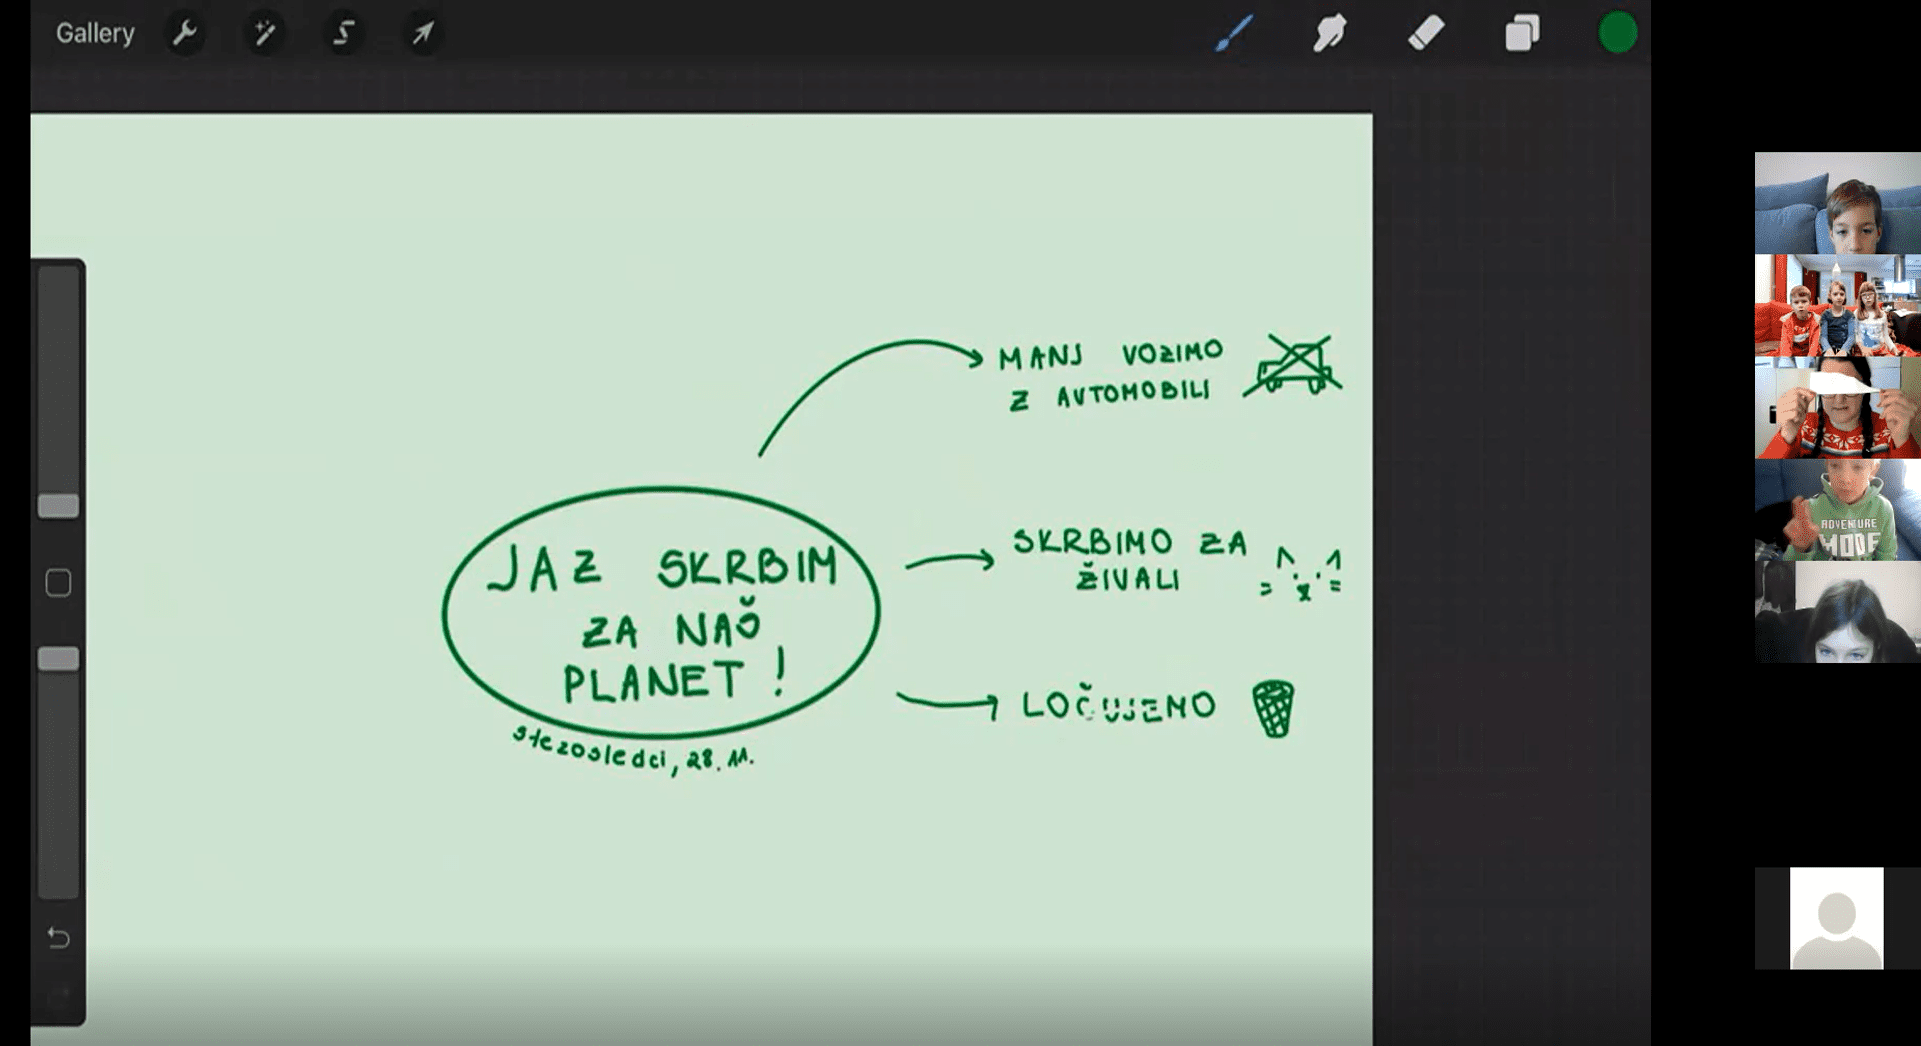 Gallery
MANJ VOZIMO
Z AVTOMOBILI
JAZ SKRBIM
ZA NAŠ
PLANET!
stezosledci, 28. 11.
SKRBIMO ZA
ŽIVALI
LOČUJEMO
ADVENTURE
MODE